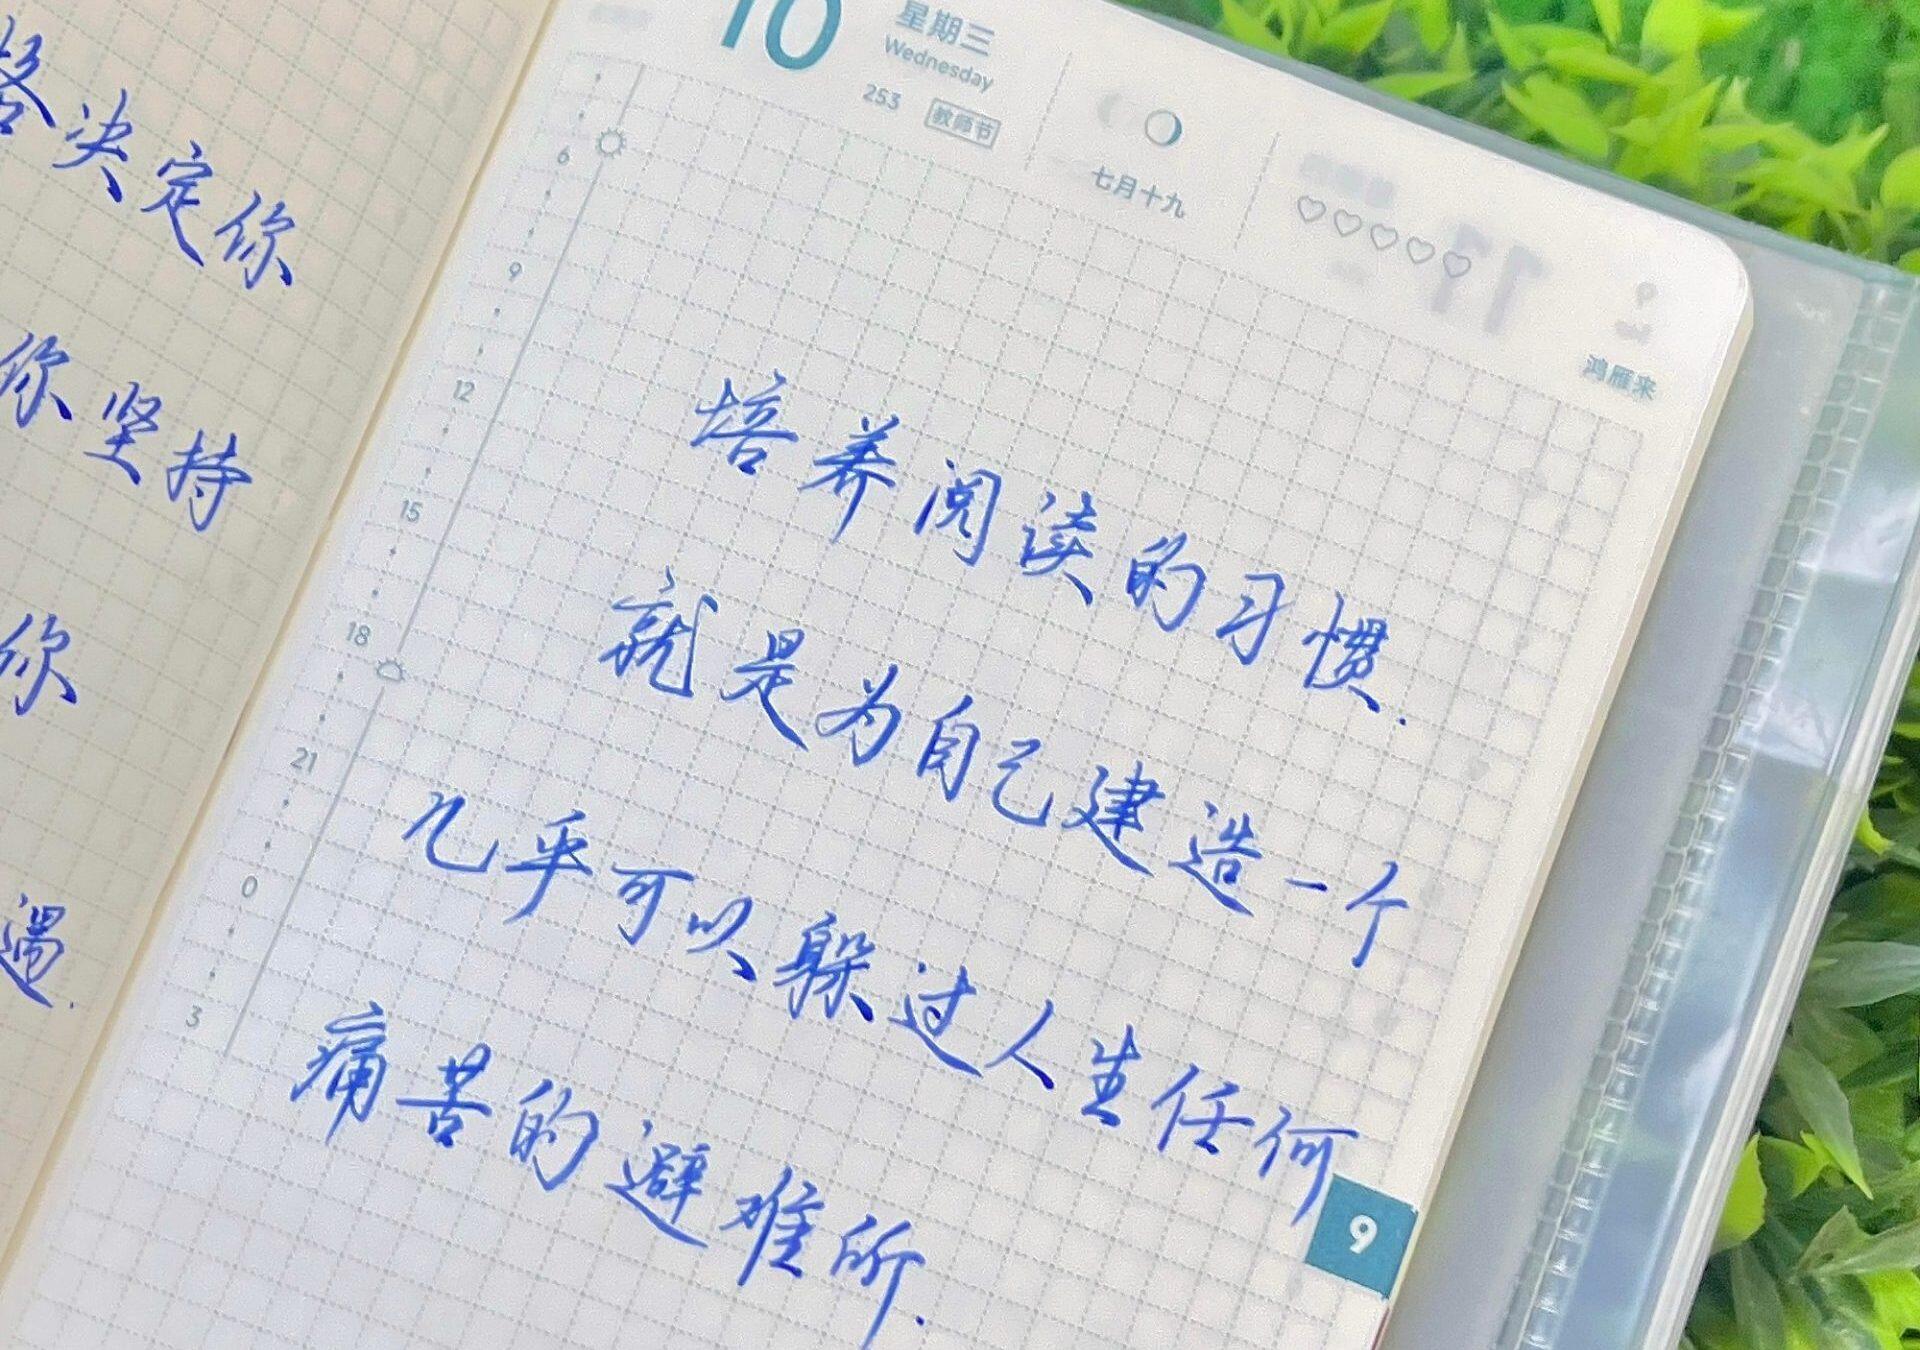 决定你
你坚持
你
遇.
10
星期三
Wednesday
253 教师节
七月十九
鸿雁来
6
9
12
15
18
21
0
3
培养阅读的习惯.
就是为自己建造一个
几乎可以躲过人生任何
痛苦的避难所.
9